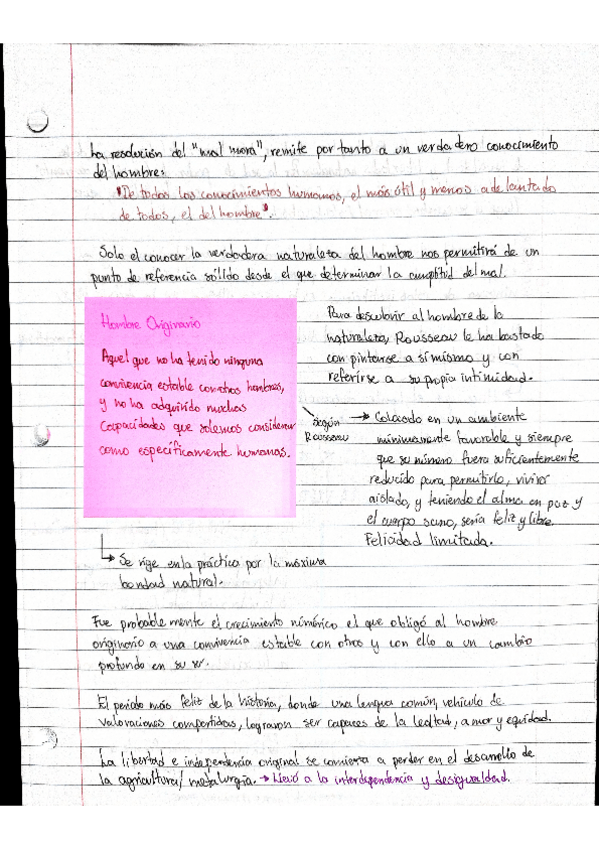 La resolución del "mal moral", remite por tanto a un verdadero conocimiento
del hombre:
"De todos los conocimientos humanos, el más útil y menos adelantado
de todos, el del hombre".
Solo el conocer la verdadera naturaleza del hombre nos permitirá de un
punto de referencia sólido desde el que determinar la del mal.
Hombre Originario
Aquel que no ha tenido ninguna
convivencia estable con otros hombres,
y no ha adquirido muchas
capacidades que solemos considerar
como específicamente humanas.
Para descubrir al hombre de la
naturaleza, Rousseau le ha bastado
con pintarse a sí mismo y con
referirse a su propia intimidad.
Según
Rousseau
→ Colocado en un ambiente
mínimamente favorable y siempre
que su número fuera suficientemente
reducido para permitirlo, vivir
aislado, y teniendo el alma en paz y
el cuerpo sano, sería feliz y libre.
Felicidad limitada.
↳ Se rige en la práctica por la máxima
bondad natural.
Fue probablemente el crecimiento númerico el que obligó al hombre
originario a una convivencia estable con otros y con ello a un cambio
profundo en su
El periodo más feliz de la historia, donde una lengua común, vehículo de
valoraciones compartidas, lograron ser capaces de la lealtad, amor y equidad.
La libertad e independencia original se comienza a perder en el desarrollo de
la agricultura/ metalurgia. → Llevó a la interdependencia y desigualdad.